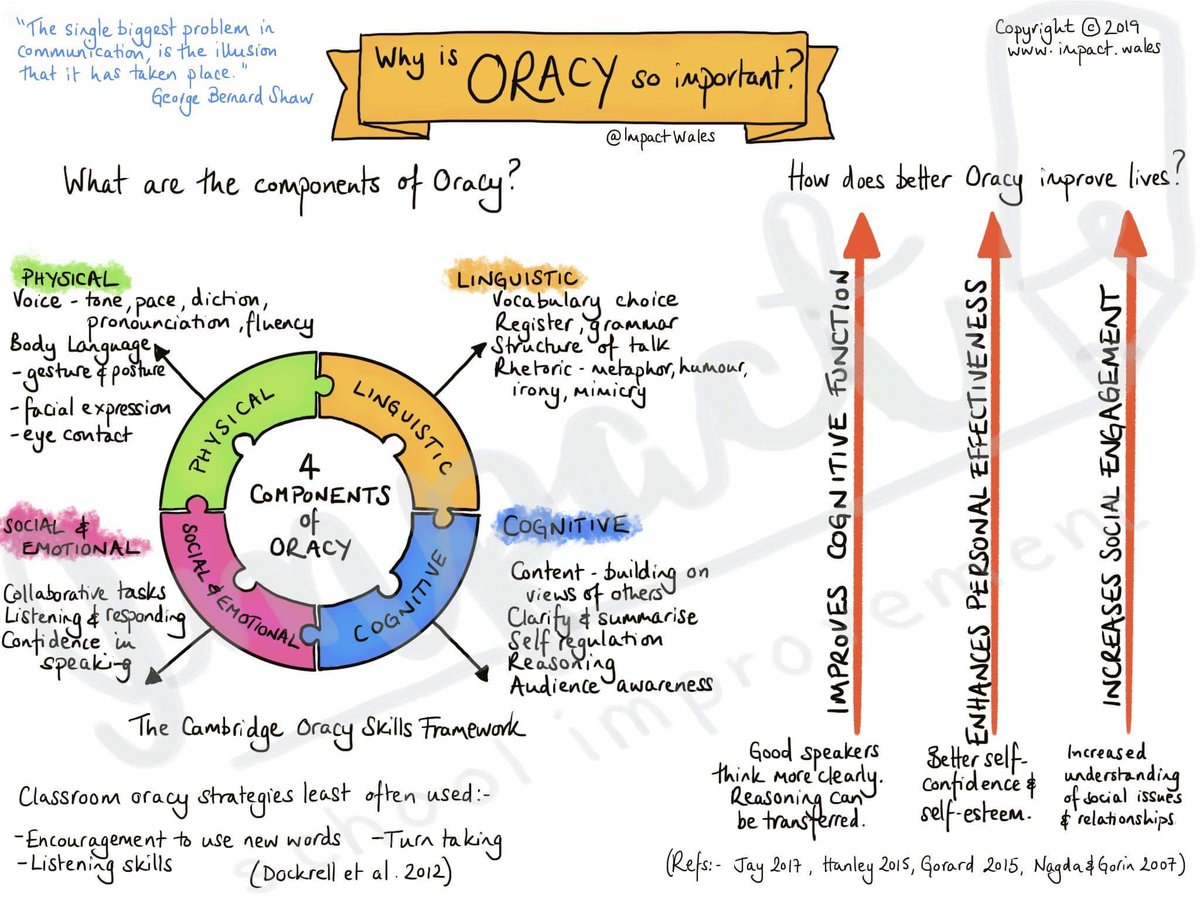 "The single biggest problem in
communication, is the illusion
that it has taken place."
George Bernard Shaw
Why is ORACY so important?
@ImpactWales
Copyright © 2019
www.impact.wales
What are the components of Oracy?
PHYSICAL
Voice - tone, pace, diction,
pronounciation, fluency
Body Language
- gesture & posture
- facial expression
- eye contact
LINGUISTIC
Vocabulary choice
Register, grammar
Structure of talk
Rhetoric - metaphor, humour,
irony, mimicry
PHYSICAL
LINGUISTIC
SOCIAL & EMOTIONAL
COGNITIVE
4
COMPONENTS
of
ORACY
SOCIAL &
EMOTIONAL
Collaborative tasks
Listening & responding
Confidence in
speaking
COGNITIVE
Content - building on
views of others
Clarify & summarise
Self regulation
Reasoning
Audience awareness
The Cambridge Oracy Skills Framework
Classroom oracy strategies least often used:-
- Encouragement to use new words - Turn taking
- Listening skills
(Dockrell et al. 2012)
How does better Oracy improve lives?
IMPROVES COGNITIVE FUNCTION
Good speakers
think more clearly.
Reasoning can
be transferred.
ENHANCES PERSONAL EFFECTIVENESS
Better self-
confidence &
self-esteem.
INCREASES SOCIAL ENGAGEMENT
Increased
understanding
of social issues
& relationships
(Refs:- Jay 2017, Hanley 2015, Gorard 2015, Nagda & Gorin 2007)
impact
school improvement